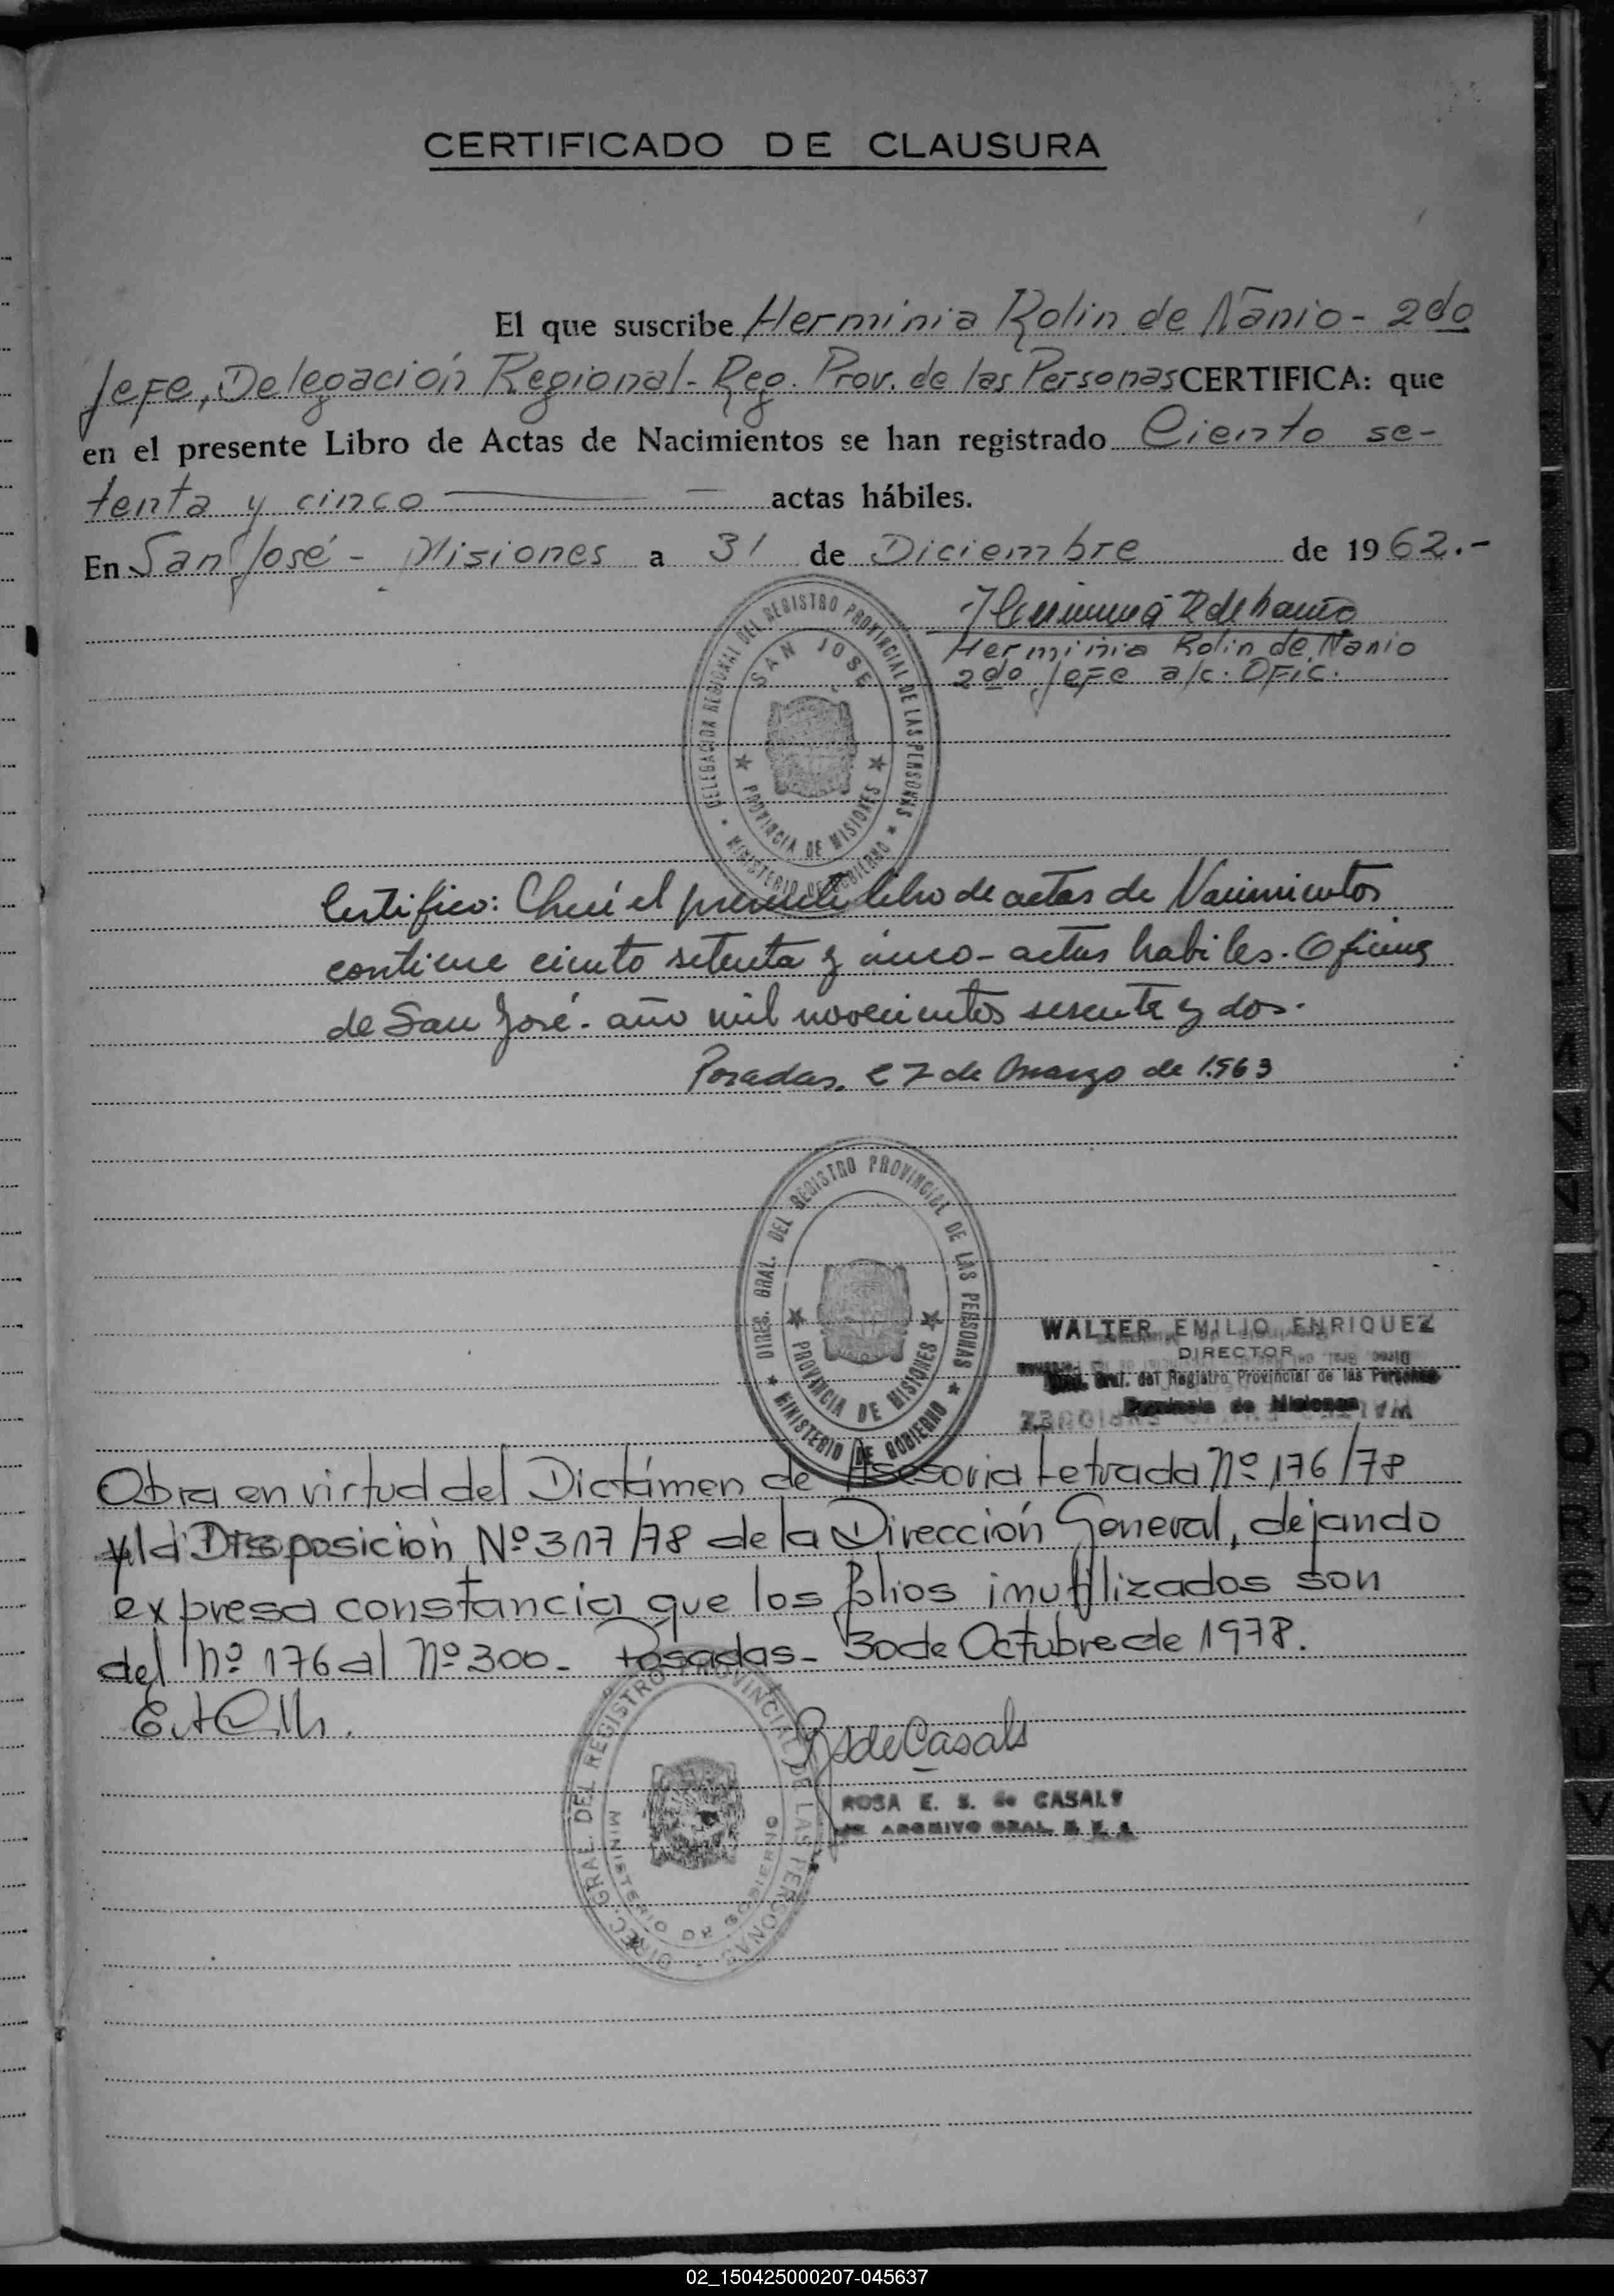 CERTIFICADO DE CLAUSURA
El que suscribe Herminia Rolin de Ñanio - 2do
Jefe, Delegación Regional - Reg. Prov. de las Personas CERTIFICA: que
en el presente Libro de Actas de Nacimientos se han registrado Ciento se-
tenta y cinco actas hábiles.
En San José - Misiones a 31 de Diciembre de 1962.-
Herminia Rolin de Nanio
2do Jefe a/c. Ofic.
DELEGACION REGIONAL DEL REGISTRO PROVINCIAL DE LAS PERSONAS
SAN JOSE
PROVINCIA DE MISIONES
MINISTERIO DE GOBIERNO
Certifico: Que el presente libro de actas de Nacimientos
contiene ciento setenta y cinco - actas habiles. Oficina
de San José. año mil novecientos sesenta y dos.
Posadas, 27 de Marzo de 1.963
DIREC. GRAL. DEL REGISTRO PROVINCIAL DE LAS PERSONAS
PROVINCIA DE MISIONES
MINISTERIO DE GOBIERNO
WALTER EMILIO ENRIQUEZ
DIRECTOR
Gral. del Registro Provincial de las Personas
Provincia de Misiones
Obra en virtud del Dictámen de Asesoria Letrada Nº 176/78
y la Disposición Nº 317/78 de la Dirección General, dejando
expresa constancia que los folios inutilizados son
del Nº 176 al Nº 300 - Posadas - 30 de Octubre de 1978.
RSdeCasals
ROSA E. S. de CASALS
ARCHIVO GRAL.
DIREC. GRAL DEL REGISTRO PROVINCIAL DE LAS PERSONAS
MINISTERIO DE GOBIERNO
02_150425000207-045637